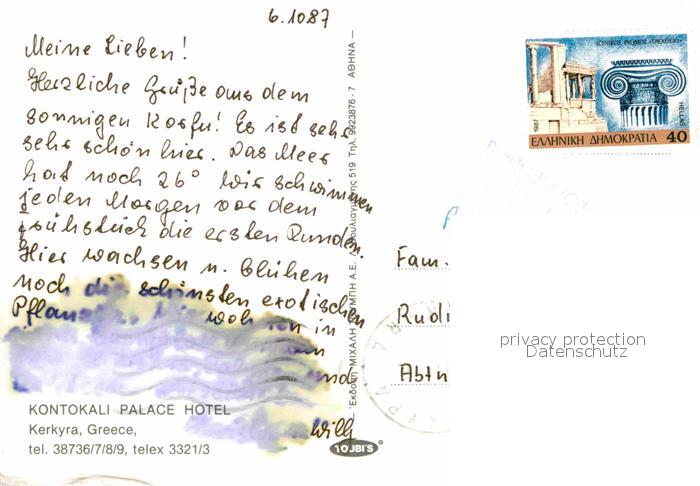 6.10.87
Meine Lieben!
Herzliche Grüße aus dem
sonnigen Korfu! Es ist sehr
sehr schön hier. Das Meer
hat noch 26° Wir schwimmen
jeden Morgen vor dem
Frühstück die ersten Runden.
Hier wachsen u. blühen
noch die schönsten exotischen
in
und
Willy
KONTOKALI PALACE HOTEL
Kerkyra, Greece,
tel. 38736/7/8/9, telex 3321/3
519 Τηλ. 9923876 - 7 ΑΘΗΝΑ —
— Έκδοση ΜΙΧΑΛΗ
Α.Ε.
10 JBI'S
ΙΩΝΙΚΟΣ ΡΥΘΜΟΣ «ΕΡΕΧΘΕΙΟ»
1987
HELLAS
ΕΛΛΗΝΙΚΗ ΔΗΜΟΚΡΑΤΙΑ 40
Fam.
Rudi
Abtn
privacy protection
Datenschutz